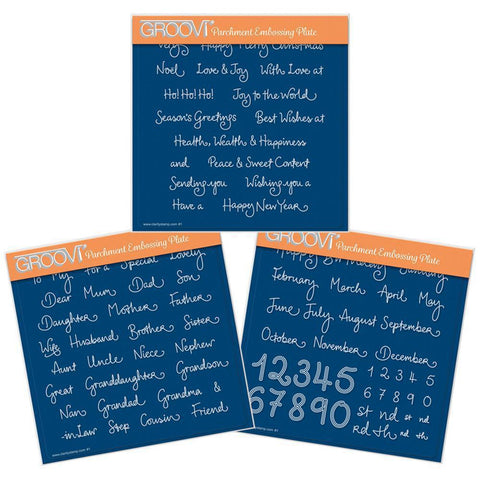 GROOVI® Parchment Embossing Plate
Very Happy Merry Christmas
Noël Love & Joy With Love at
Ho! Ho! Ho! Joy to the World
Season's Greetings Best Wishes at
Health, Wealth & Happiness
and Peace & Sweet Content
Sending you Wishing you a
Have a Happy New Year
www.claritystamp.com
GROOVI® Parchment Embossing Plate
To My for a Special Lovely
Dear Mum Dad Son
Daughter Mother Father
Wife Husband Brother Sister
Aunt Uncle Niece Nephew
Great Granddaughter Grandson
Nan Grandad Grandma &
-in-Law Step Cousin Friend
www.claritystamp.com
GROOVI® Parchment Embossing Plate
Happy Birthday January
February March April May
June July August September
October November December
12345
67890
1 2 3 4 5
6 7 8 9 0
st nd st nd
rd th rd th
www.claritystamp.com